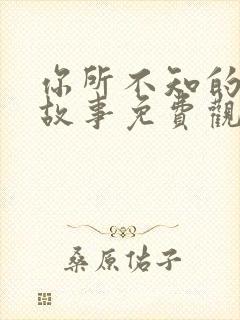 你所不知的
故事免費觀
桑原佑子